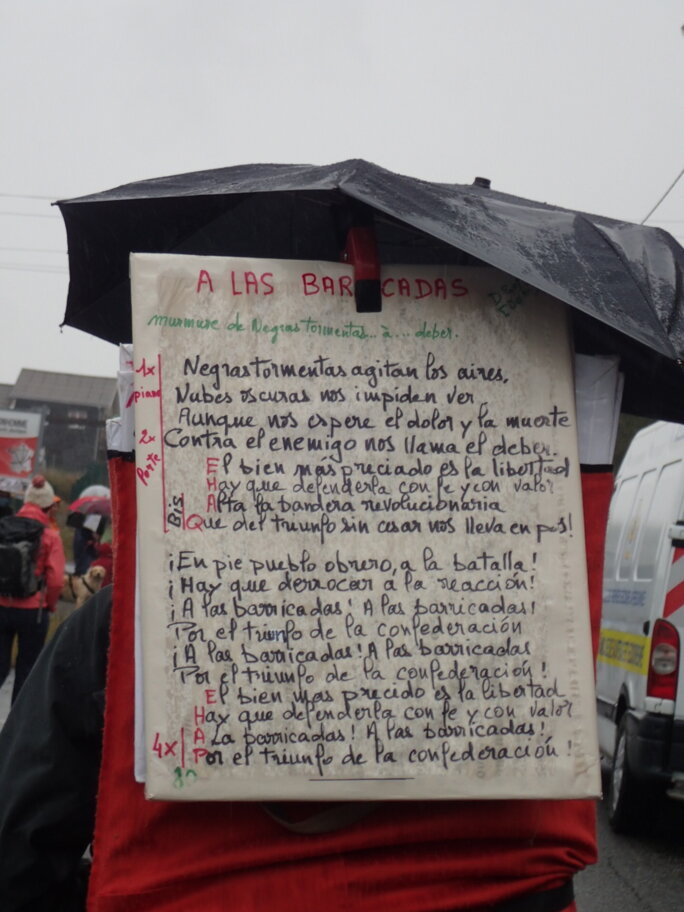 A LAS BARRICADAS
murmure de Negras Tormentas... à ... deber.
1x
piano
Negras tormentas agitan los aires,
Nubes oscuras nos impiden ver
Aunque nos espere el dolor y la muerte
2x
Contra el enemigo nos llama el deber.
El bien mas preciado es la libertad
Hay que defenderla con fe y con valor
Bis
Alta la bandera revolucionaria
Que del triunfo sin cesar nos lleva en pos!
¡En pie pueblo obrero, a la batalla!
¡Hay que derrocar a la reacción!
¡A las barricadas! A las barricadas!
Por el triunfo de la confederación
¡A las barricadas! A las barricadas
Por el triunfo de la confederación!
El bien mas precido es la libertad
Hay que defenderla con fe y con valor
4x
A La barricadas! A las barricadas!
Por el triunfo de la confederación!